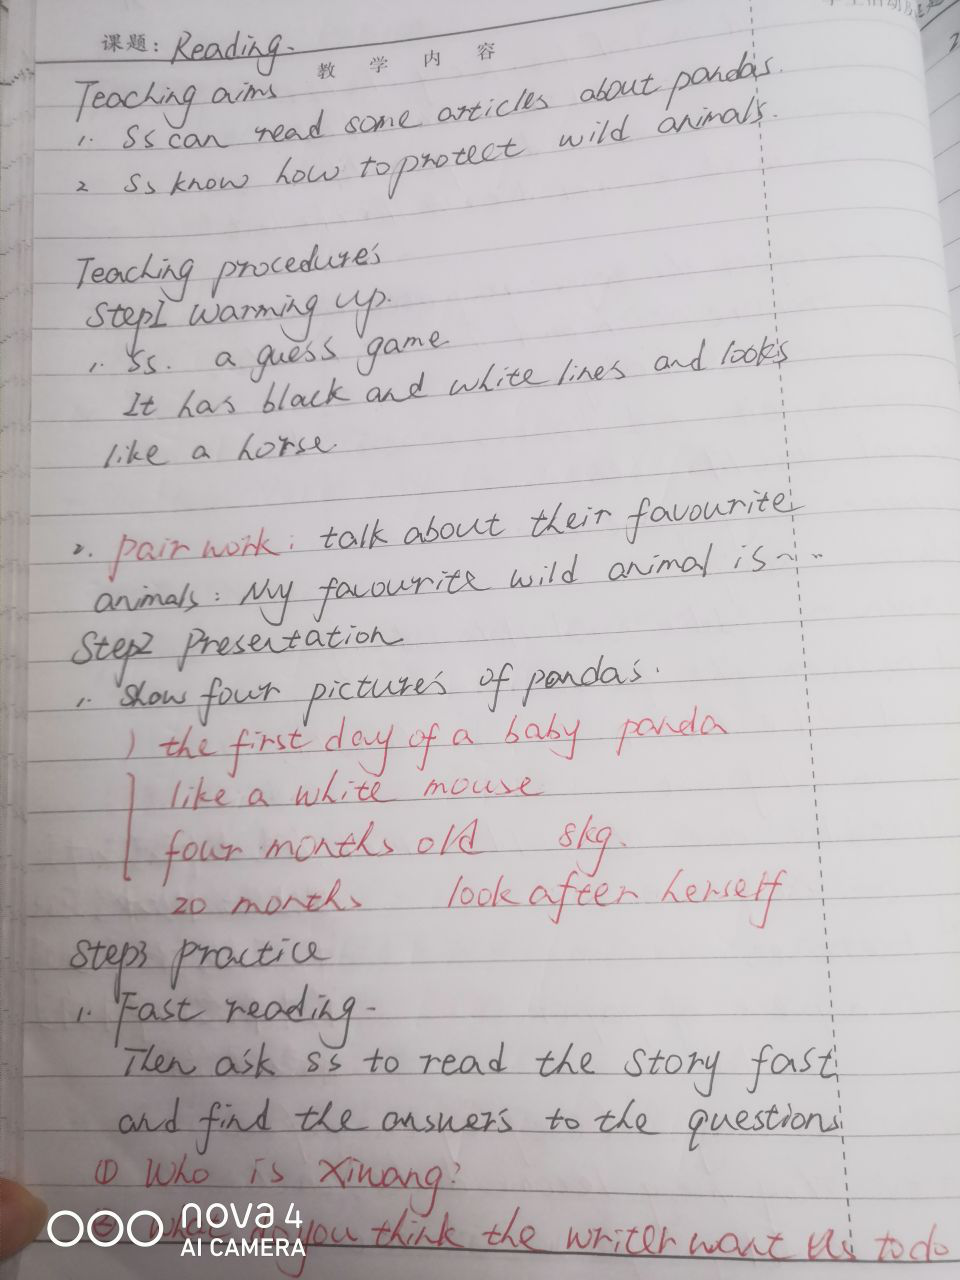 课题: Reading.
教 学 内 容
Teaching aims
1. Ss can read some articles about pandas.
2 Ss know how to protect wild animals.
Teaching procedures
Step1 warming up.
1. Ss. a guess game
It has black and white lines and looks
like a horse.
2. pair work: talk about their favourite
animals: My favourite wild animal is ~ ..
Step2 Presentation
1. Show four pictures of pandas.
) the first day of a baby panda
like a white mouse
four months old 8kg.
20 months look after herself
Step3 practice
1. Fast reading.
Then ask ss to read the story fast
and find the answers to the questions
① Who is Xiwang?
② What do you think the writer want us to do
nova 4
AI CAMERA